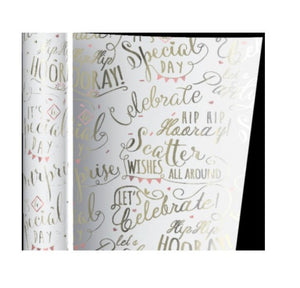 Special
DAY
Hip Hip
HOORAY!
Celebrate
IT'S A
Special
DAY
HIP HIP
Hooray!
Scatter
WISHES
ALL AROUND
Surprise
LET'S
Celebrate!
Special
DAY
Hip Hip
HOORAY
let's